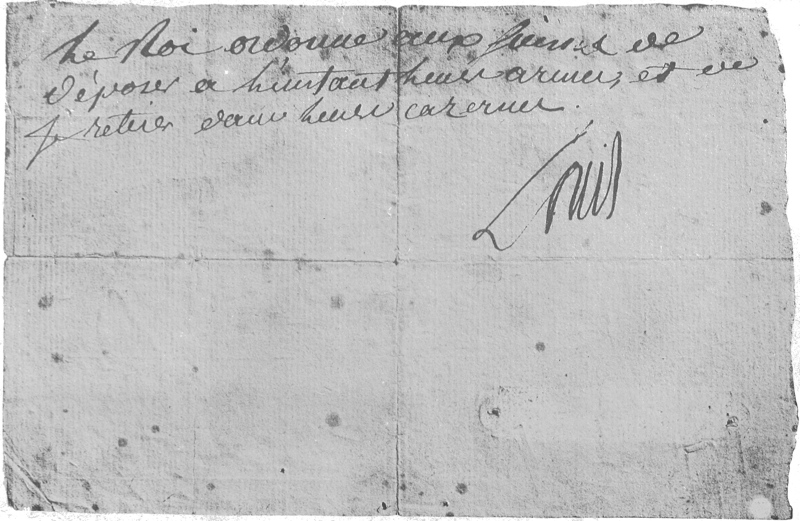 Le Roi ordonne aux Suisses de
déposer a l'instant leurs armes, et de
se retirer dans leurs cazernes.
Louis